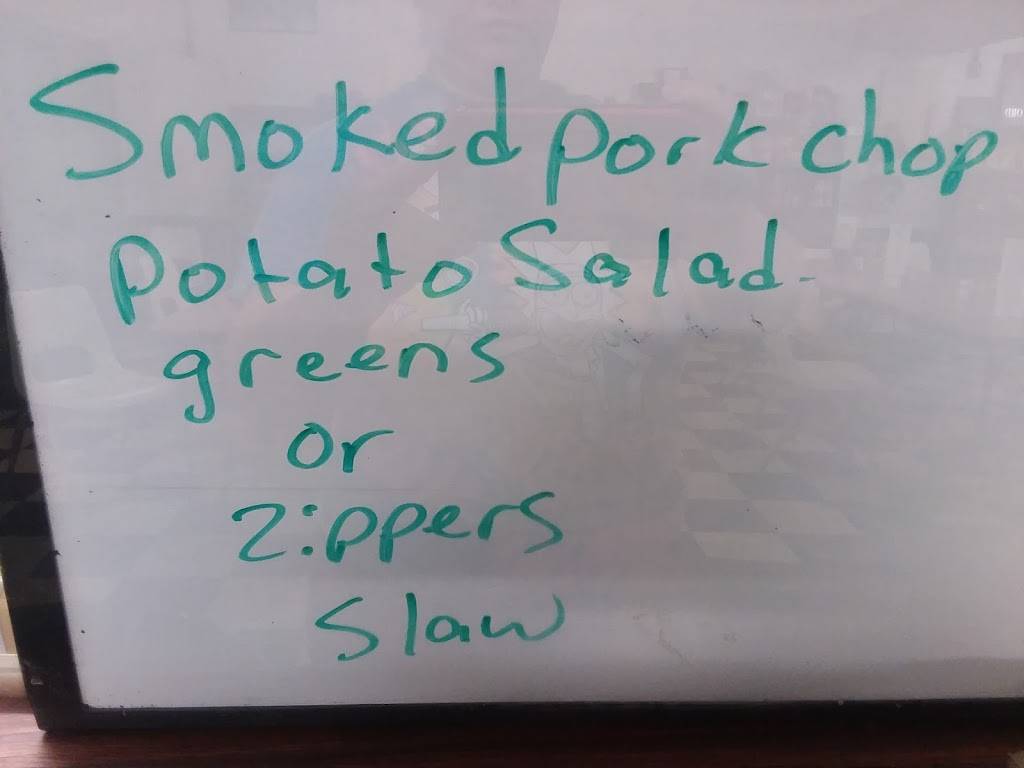 Smoked pork chop
potato Salad-
greens
or
Zippers
Slaw